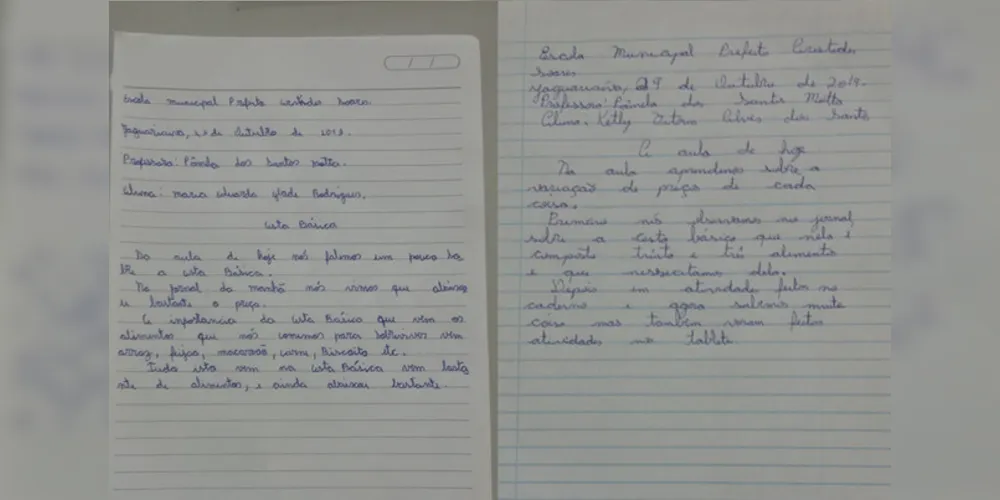 Escola municipal Prefeito
Jaguariaíva, 29 de Outubro de 2019.
Professora: Pâmela dos Santos Motta.
Aluna: maria Eduarda Rodrigues.
Cesta Básica
Na aula de hoje nós falamos um pouco so
bre a cesta Básica.
No jornal da manhã nós vimos que abaixo
u bastante o preço.
A importancia da cesta Básica que vem os
alimentos que nós comemos para sobreviver vem
arroz, feijão, macarrão, carne, Biscoito etc.
Tudo isto vem na cesta Básica vem basta
nte de alimentos, e ainda abaixou bastante.
Escola Municipal Prefeito
Soares
Jaguariaíva, 29 de Outubro de 2019.
Professora: Pâmela dos Santos Motta
Aluna: Ketly Alves dos Santos
A aula de hoje
Na aula aprendemos sobre a
variação de preços de cada
coisa.
Primeiro nós no jornal,
sobre a cesta básica que nela é
composta trinta e três alimento
e que nessecitamos dela.
Depois em atividades feitas no
caderno e agora sabemos muita
coisa mas também foram feitas
atividades no tablete